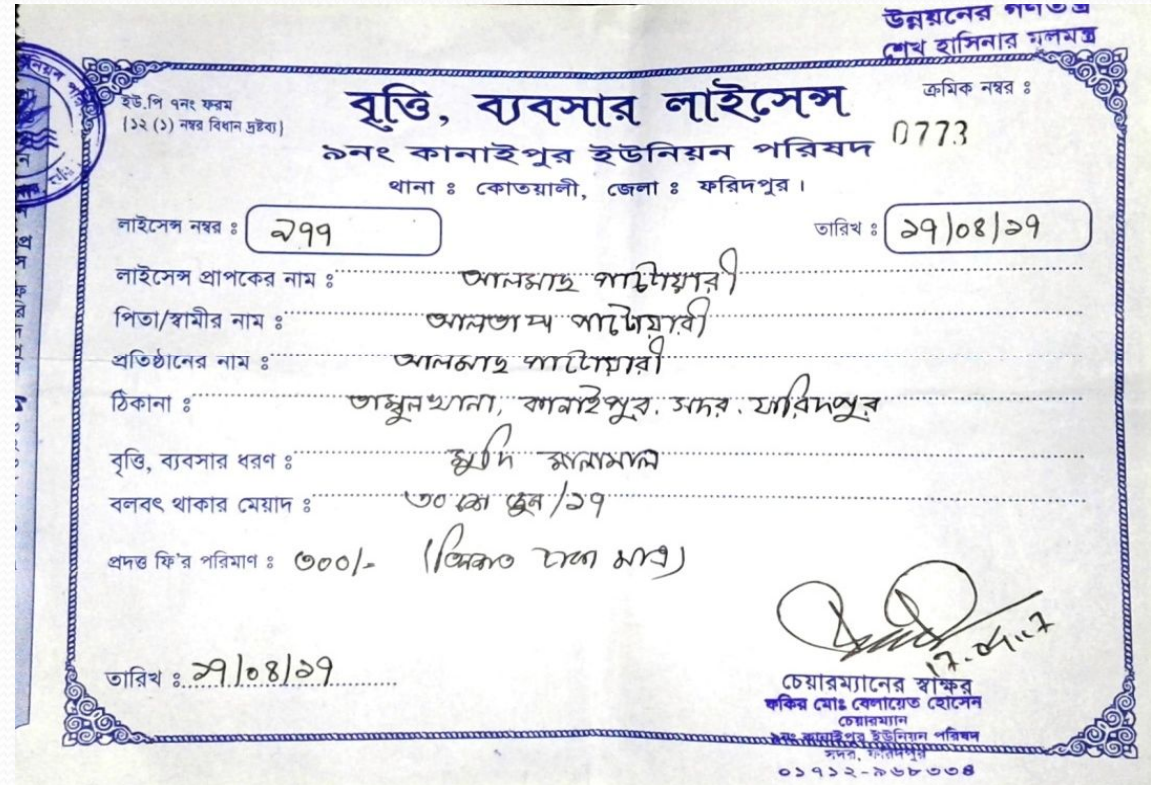 উন্নয়নের গণতন্ত্র
শেখ হাসিনার মূলমন্ত্র
ইউ.পি ৭নং ফরম
[১২ (১) নম্বর বিধান দ্রষ্টব্য]
বৃত্তি, ব্যবসার লাইসেন্স
ক্রমিক নম্বর ঃ
0773
৯নং কানাইপুর ইউনিয়ন পরিষদ
থানা ঃ কোতয়ালী, জেলা ঃ ফরিদপুর।
লাইসেন্স নম্বর ঃ ২৭৭
তারিখ ঃ ১৭/০৪/১৭
লাইসেন্স প্রাপকের নাম ঃ আলমাছ পাটোয়ারী
পিতা/স্বামীর নাম ঃ পাটোয়ারী
প্রতিষ্ঠানের নাম ঃ আলমাছ পাটোয়ারী
ঠিকানা ঃ তাম্বুলখানা, কানাইপুর. সদর. ফরিদপুর
বৃত্তি, ব্যবসার ধরণ ঃ মুদি মালামাল
বলবৎ থাকার মেয়াদ ঃ ৩০ শে জুন /১৭
প্রদত্ত ফি'র পরিমাণ ঃ ৩০০/= (তিনশত টাকা মাত্র)
তারিখ ঃ ১৭/০৪/১৭
চেয়ারম্যানের স্বাক্ষর
ফকির মোঃ বেলায়েত হোসেন
চেয়ারম্যান
৯নং কানাইপুর ইউনিয়ন পরিষদ
সদর, ফরিদপুর
০১৭১২-৯৬৮৩৩৪